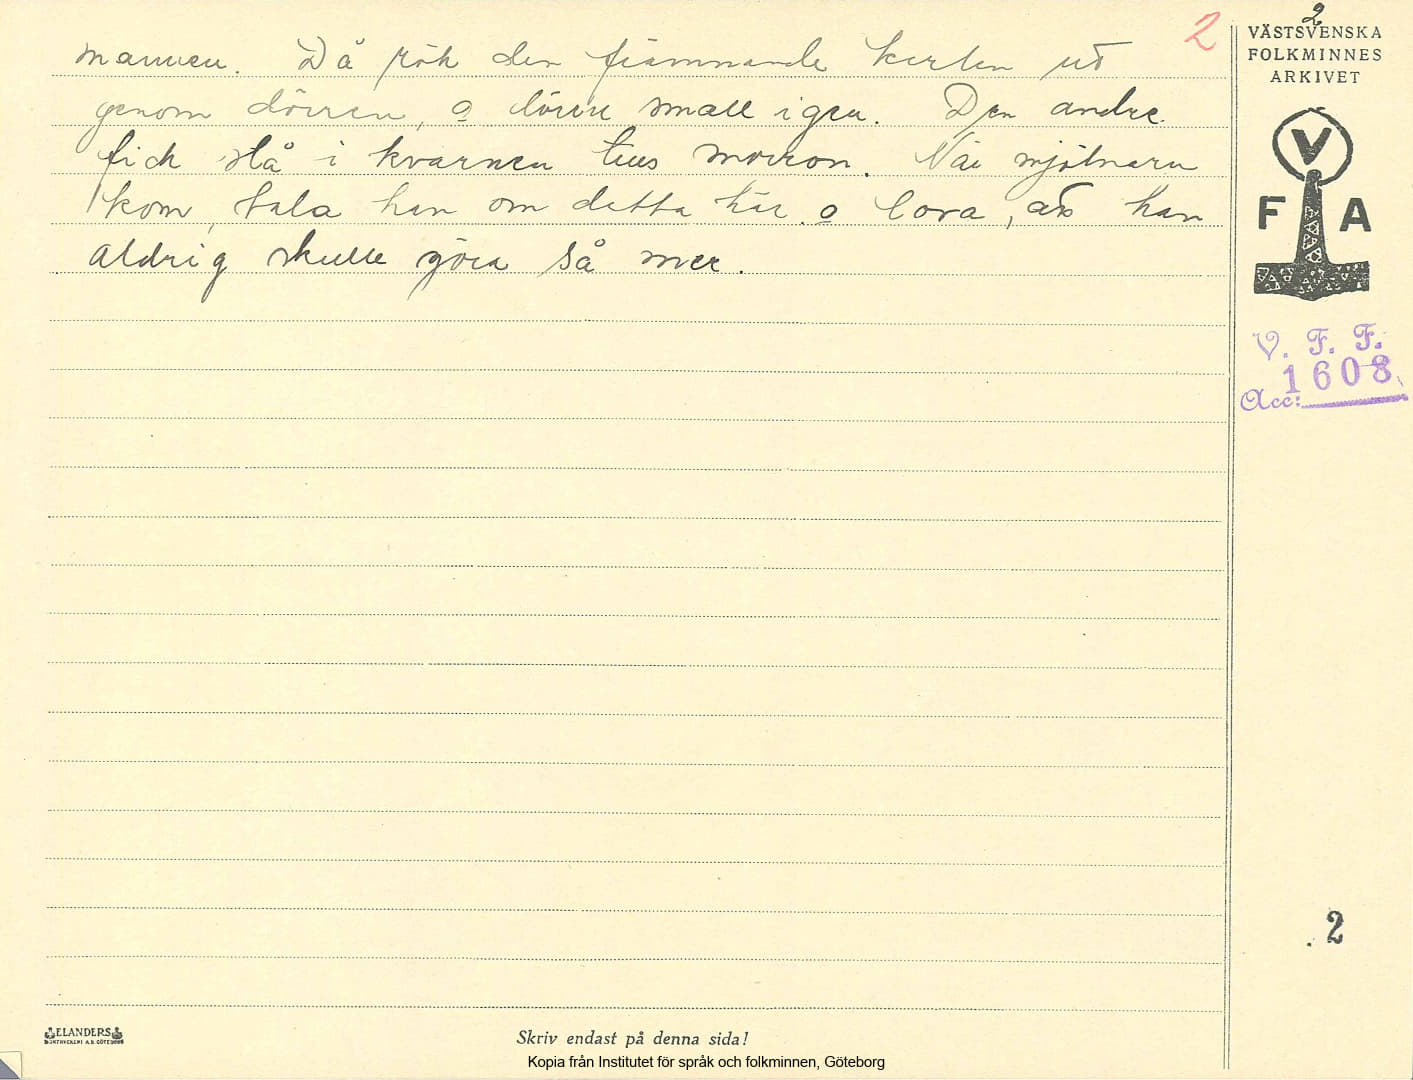 2
2
VÄSTSVENSKA
FOLKMINNES
ARKIVET
mannen. Då rök den främmande kerlen ut
genom dörren, o dörrn small igen. Den andre
fick stå i kvarnen tess morron. När mjölnarn
kom, tala han om detta här o lova, att han
aldrig skulle göra så mer.
V
F A
V. F. F.
1608
Acc:
2
ELANDERS
Skriv endast på denna sida!
Kopia från Institutet för språk och folkminnen, Göteborg